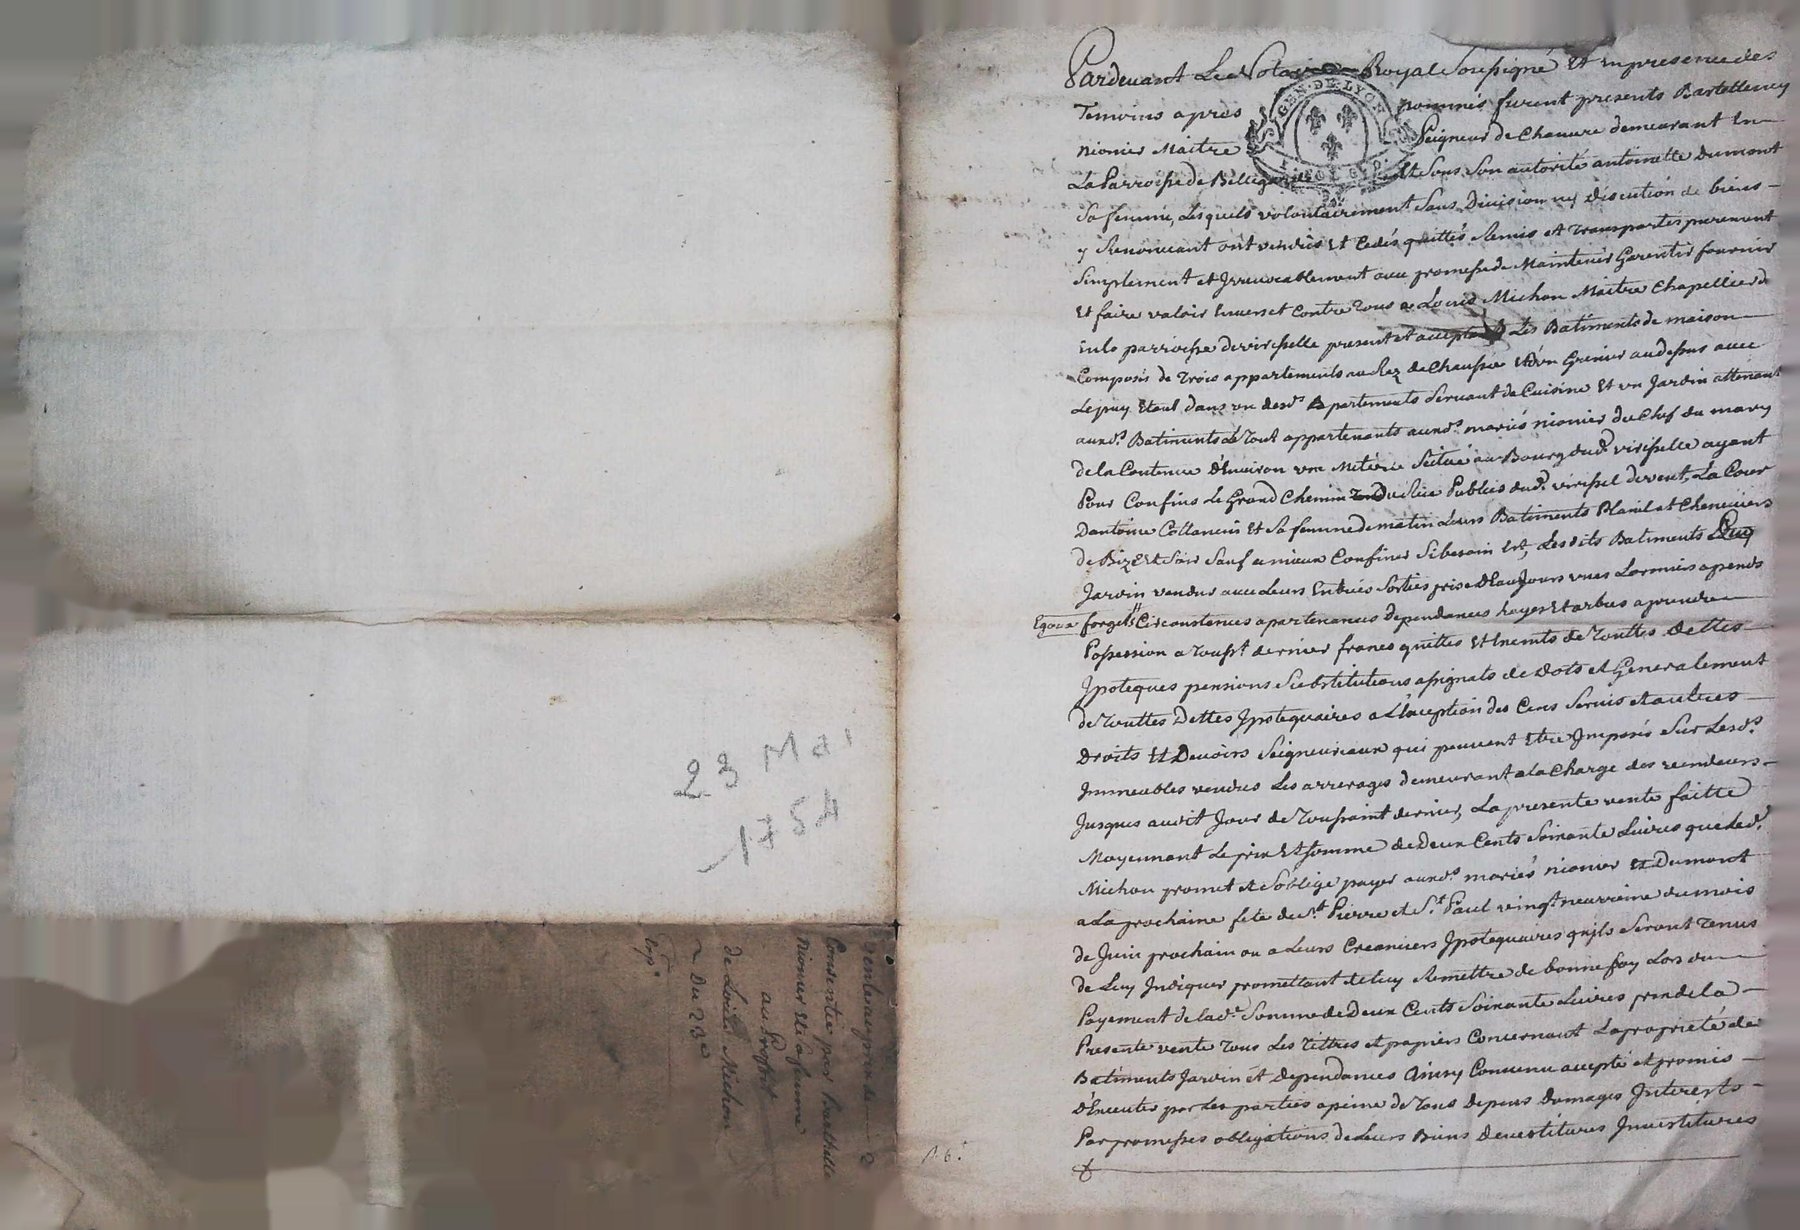 23 Mai
1754
Vente a prix de
Consentie par Barthelle
Nionier et sa femme
au Proffit
de Louis Michon
Du 23e
Expn
Pardevant Le Notaire Royal Soussigné Et en presence des
Temoins apres nommés furent presents Bartellemy
nionier Maitre Seigneur de Chamure demeurant En
La Parroisse de Et Sous Son autorité antoinette Dumont
Sa femme, Lesquels volontairement Sans Division ny Discution de biens
y Renoncant ont vendus Et Cedés quittés Remis et Transportes purement
Simplement et Irrevocablement avec promesse de Maintenir Garentir fournir
Et faire valoir Envers et Contre Tous a Louis Michon Maitre Chapellier d
En la parroisse de virisselle present et acceptant Les Batiments de maison
Composés de Trois appartements au Rez de Chaussée Et d'un Grenier au dessus avec
Le puy Etant dans un desds Apartements Servant de Cuisine Et un Jardin attenant
auxds Batiments Le Tout appartenants auxds mariés nionier du Chef du mary
de la Contenue d'Environ une Metérée Scitué au Bourg dud. virisselle ayant
Pour Confins Le Grand Chemin Tend Place Publics dud. virissel de vent, La Cour
D'antoine Collancin Et Sa femme de matin Leurs Batiments Planil et Cheneviers
de Bize Et Soir Sauf a mieux Confiner Si besoin Est, Lesdits Batiments
Jardin vendus avec Leurs Entrées Sorties prise d'Eau Jours vues Larmiers apends
Egoux forgets Circonstences apartenances dependances hayes Et arbres a prendre
Possession a Tousst dernier francs quittes Et Exemts de Touttes Dettes
Ipoteques pensions Substitutions assignats de Dots et Generalement
de Touttes Dettes Ipotequaires a L'Exeption des Cens Servis et autres
Droits Et Devoirs Seigneuriaux qui peuvent Etre Imposés Sur Lesds
Immeubles vendus Les arrerages demeurant a la Charge des vendeurs
Jusques audit Jour de Toussaint dernier, La presente vente faitte
Moyennant Le prix Et Somme de Deux Cents Soixante Livres que Led.
Michon promet et S'oblige payer auxds mariés nionier Et Dumont
a La prochaine fete de St Pierre et St Paul vingt neuvieme du mois
de Juin prochain ou a Leurs Creanciers Ipotequaires qu'ils Seront Tenus
de Luy Indiquer promettant de luy Remettre de bonne foy Lors du
Payement de lade Somme de Deux Cents Soixante Livres prix de la
Presente vente Tous Les Tittres et papiers Concernant La proprieté des
Batiments Jardin et Dependances Ainsy Convenu accepté et promis
d'Executer par Les parties a peine de Tous Depens Domages Interests
Par promesses obligations de Leurs Biens Devestitures Investitures
GEN·DE·LYON